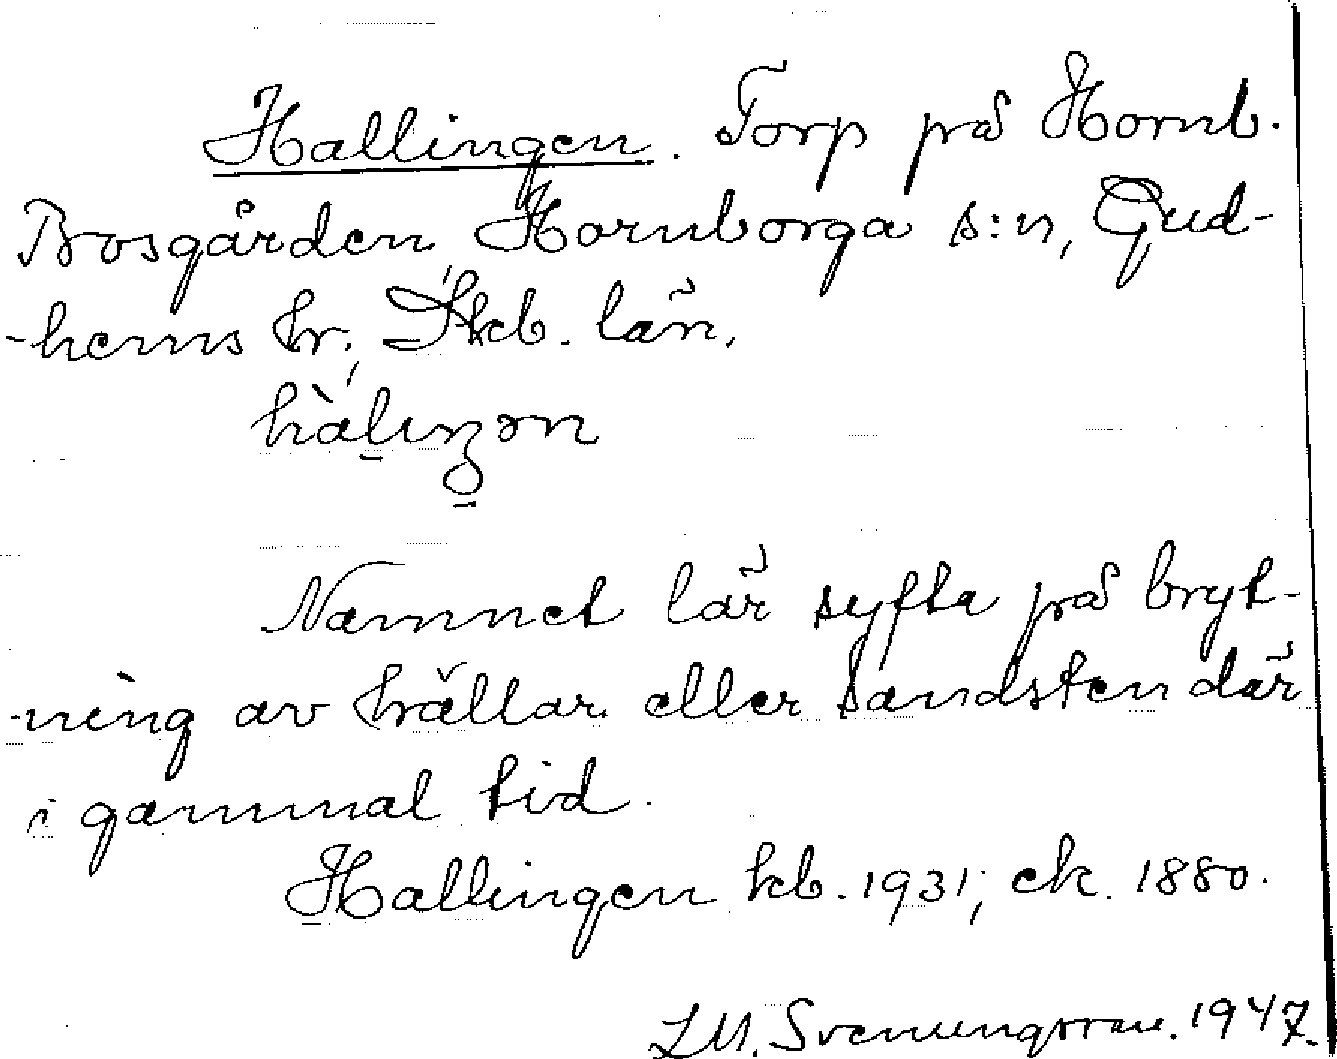 Hallingen. Torp på Hornb.
Bosgården, Hornborga s:n, Gud-
-hems hr, Skb. län.
Namnet lär syfta på bryt-
-ning av hällar eller sandsten där
i gammal tid.
Hallingen kb. 1931; ek. 1880.
L.M. Svenungsson. 1947.